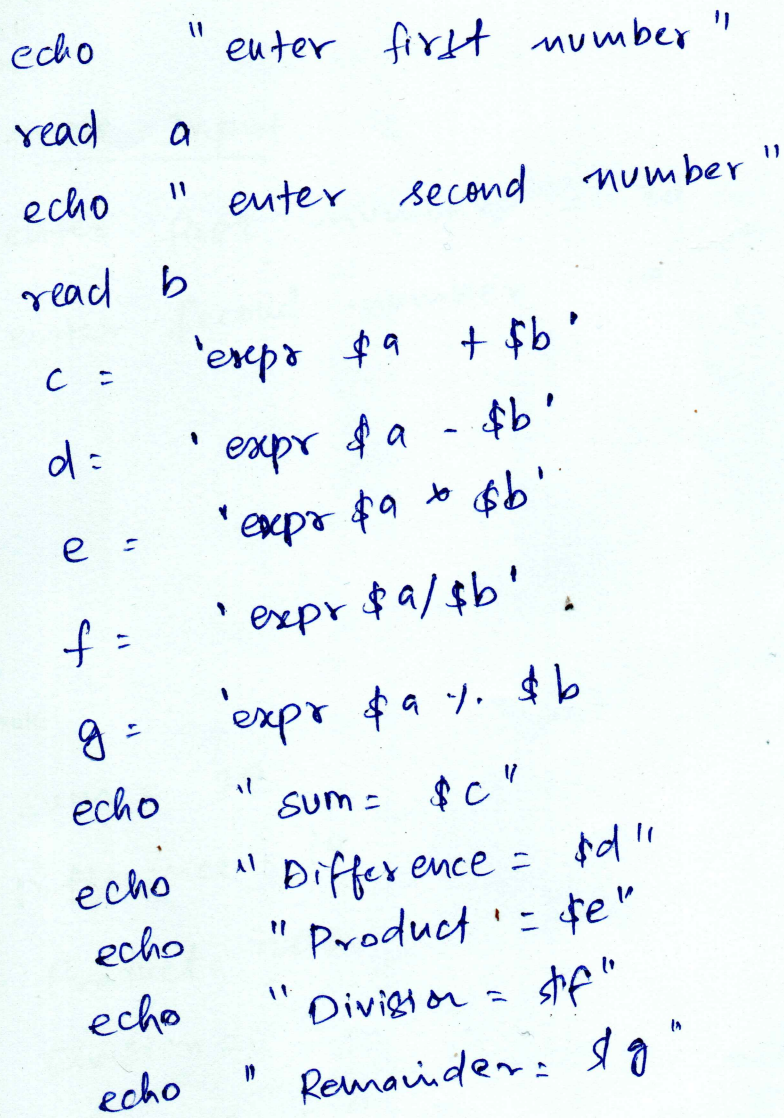 echo " enter first number "
read a
echo " enter second number "
read b
c = 'expr $a + $b'
d = ' expr $a - $b'
e = 'expr $a * $b'
f = ' expr $a/$b'
g = 'expr $a % $b
echo " sum = $c"
echo " Difference = $d"
echo " Product = $e"
echo " Division = $f"
echo " Remainder = $g"